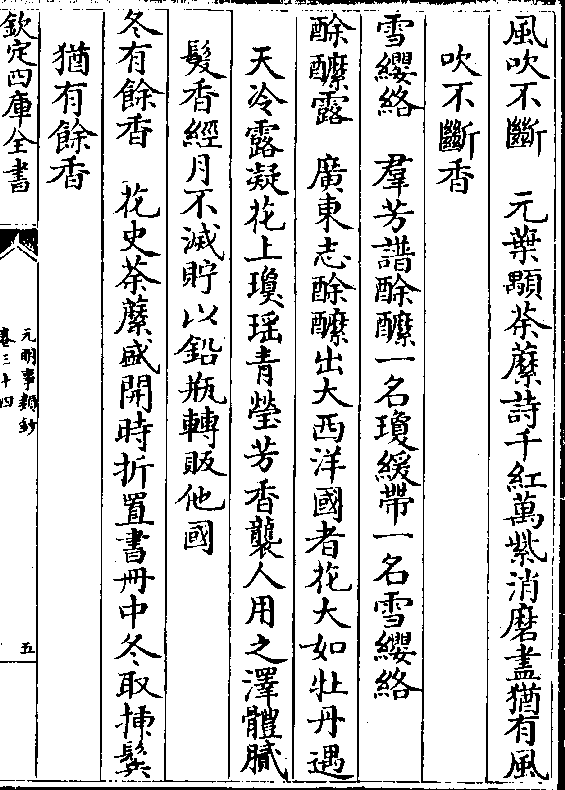 風吹不斷　元葉顒荼蘼詩千紅萬紫消磨盡猶有風
吹不斷香
雪纓絡　羣芳譜酴醿一名瓊緩帶一名雪纓絡
酴醿露　廣東志酴醿出大西洋國者花大如牡丹遇
天冷露凝花上瓊瑶青瑩芳香襲人用之澤體膩
髮香經月不滅貯以鉛瓶轉販他國
冬有餘香　花史荼蘼盛開時折置書冊中冬取揷鬢
猶有餘香
欽定四庫全書
元明事類鈔
卷三十四
五